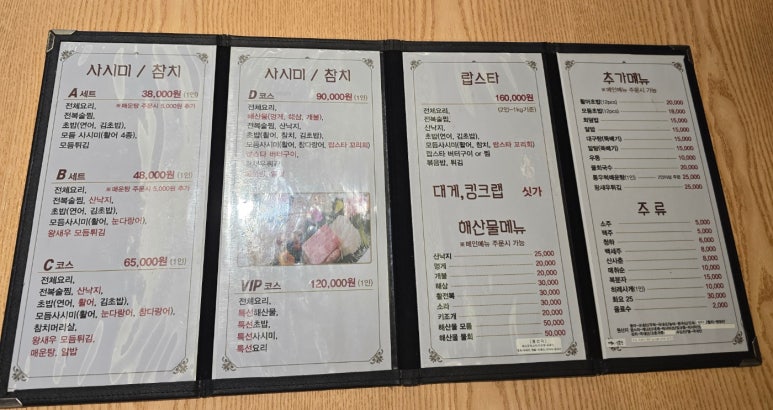 사시미 / 참치
A 세트 38,000원 (1인)
전체요리, ※매운탕 주문시 5,000원 추가
전복술찜,
초밥(연어, 김초밥),
모듬 사시미(활어 4종),
모듬튀김
B 세트 48,000원 (1인)
전체요리, ※매운탕 주문시 5,000원 추가
전복술찜, 산낙지,
초밥(연어, 김초밥),
모듬사시미(활어, 눈다랑어),
왕새우 모듬튀김
C 코스 65,000원 (1인)
전체요리,
전복술찜, 산낙지,
초밥(연어, 활어, 김초밥),
모듬사시미(활어, 눈다랑어, 참다랑어),
참치머리살,
왕새우 모듬튀김,
매운탕, 알밥
사시미 / 참치
D 코스 90,000원 (1인)
전체요리,
해산물(멍게, 해삼, 개불),
전복술찜, 산낙지,
초밥(활어, 참치, 김초밥),
모듬사시미(활어, 참다랑어, 랍스타 꼬리회)
랍스타 버터구이,
VIP 코스 120,000원 (1인)
전체요리,
특선해산물,
특선초밥,
특선사시미,
특선요리
랍스타
160,000원
전체요리, (2인~1kg기준)
전복술찜,
산낙지,
초밥(연어, 김초밥),
모듬사시미(활어, 참치, 랍스타 꼬리회)
랍스타 버터구이 or 찜
볶음밥, 튀김
대게,킹크랩 싯가
해산물메뉴
※메인메뉴 주문시 가능
산낙지 25,000
멍게 20,000
개불 20,000
해삼 30,000
활전복 30,000
소라 30,000
키조개 20,000
해산물 모듬 50,000
해산물 물회 50,000
추가메뉴
※메인메뉴 주문시 가능
활어초밥(12pcs) 20,000
모듬초밥(12pcs) 18,000
회덮밥 15,000
알밥
대구탕(뚝배기)
알탕(뚝배기)
우동 10,000
물회국수 20,000
통우럭매운탕(1인) 25,000
왕새우튀김 25,000
주 류
소주 5,000
맥주 5,000
청하 6,000
백세주 8,000
산사춘 8,000
매취순 10,000
복분자 15,000
히레사케(1인) 10,000
화요 25 30,000
음료수 2,000